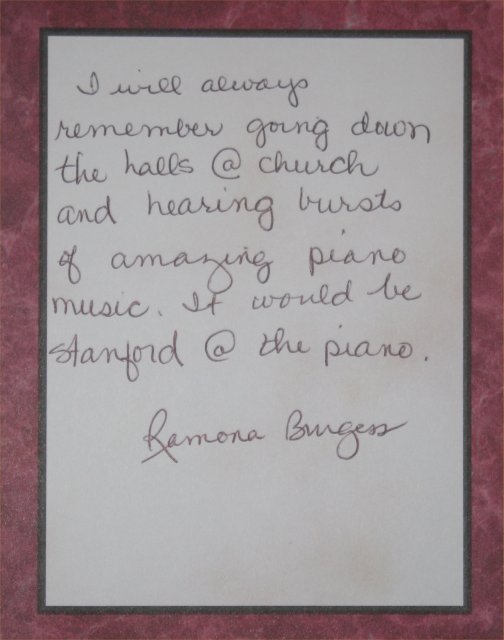 I will always
remember going down
the halls @ church
and hearing bursts
of amazing piano
music. It would be
Stanford @ the piano.
Ramona Burgess